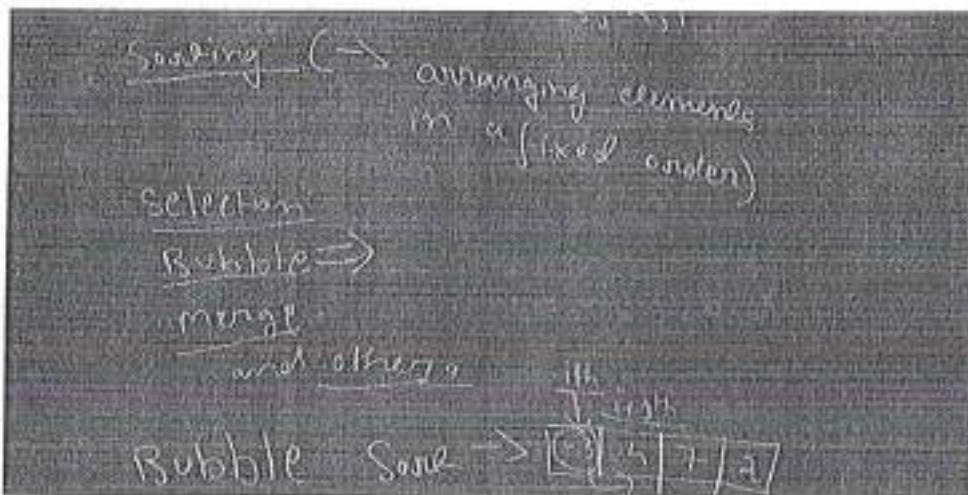 Sorting (→ arranging elements
in a (fixed order)
Selection
Bubble ⇒
merge
and others
ith
Bubble Sort → 7 2